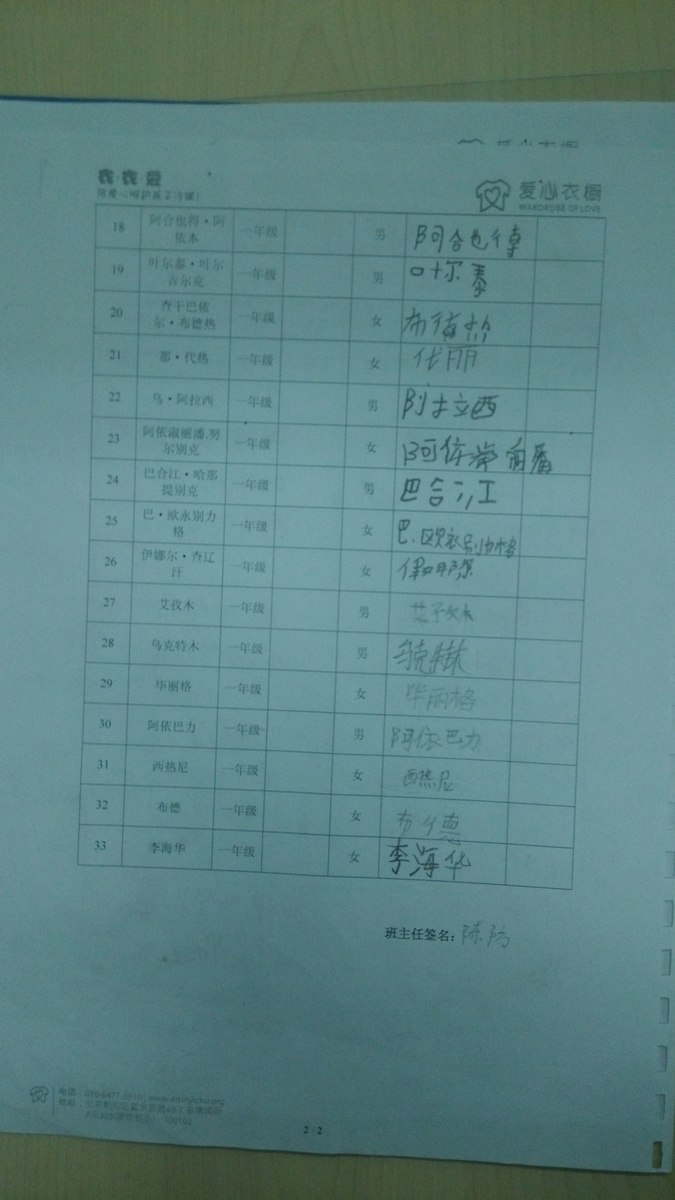 衣·衣 爱
爱心衣橱
WARDROBE OF LOVE
18 阿合也得·阿依本 一年级 男 阿合也得
19 叶尔泰·叶尔吉尔克 一年级 男 叶尔泰
20 查干巴依尔·布德热 一年级 女 布德热
21 那·代热 一年级 女
22 乌·阿拉西 一年级 男 阿拉西
23 阿依淑丽潘.努尔别克 一年级 女 阿依
24 巴合江·哈那提别克 一年级 男 巴合江
25 巴·欧永别力格 一年级 女 巴.欧永别力格
26 伊娜尔·查辽汗 一年级 女
27 艾孜木 一年级 男
28 乌克特木 一年级 男 乌克特木
29 毕丽格 一年级 女 毕丽格
30 阿依巴力 一年级 男 阿依巴力
31 西热尼 一年级 女 西热尼
32 布德 一年级 女 布德
33 李海华 一年级 女 李海华
班主任签名：陈
www.aixinyichu.org
2 / 2